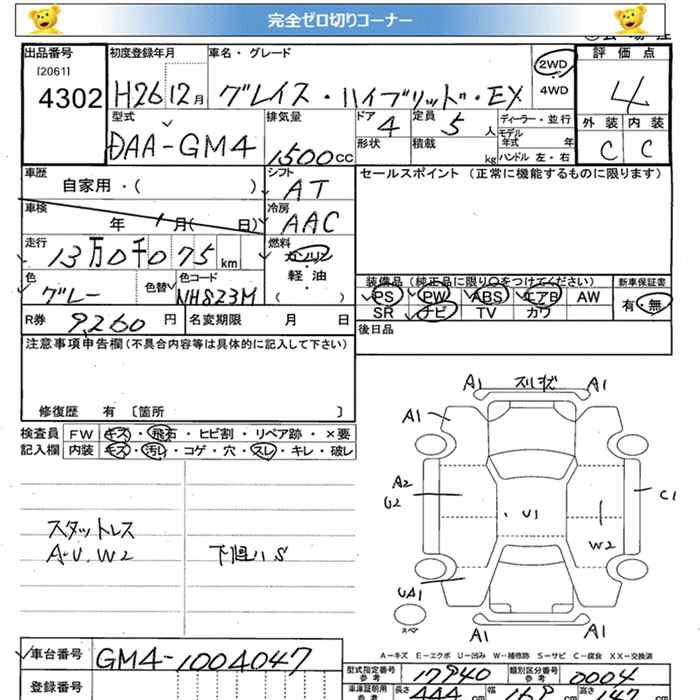 完全ゼロ切りコーナー
出品番号 初度登録年月 車名・グレード 評価点
[20611]
4302 H26 12月 グレイス・ハイブリッド・EX 2WD 4WD 4
型式 排気量 ドア 4 定員 5人 ディーラー・並行 外装 内装
DAA-GM4 1500cc 形状 積載 kg モデル年式 年 C C
ハンドル 左・右
車歴 シフト セールスポイント (正常に機能するものに限ります)
自家用・( ) AT
車検 年 月( 日) 冷房 AAC
走行 13万0千075km 燃料 ガソリン
軽・油
( )
色 グレー 色替 色コード NH823M
装備品 (純正品に限り○をつけてください) 新車保証書
PS PW ABS エアB AW 有・無
SR ナビ TV カワ
R券 9,260円 名変期限 月 日 後日品
注意事項申告欄(不具合内容等は具体的に記入して下さい)
修復歴 有 〔箇所 〕
検査員 FW キズ・飛石・ヒビ割・リペア跡・×要
記入欄 内装 キズ・汚レ・コゲ・穴・スレ・キレ・破レ
A1 A1
A1
A2
U2 U1 C1
W2
スタットレス
A・U、W2
UA1
スペア
A1 A1
A-キズ E-エクボ U-凹み W-補修跡 S-サビ C-腐食 XX-交換済
車台番号 GM4-1004047
型式指定番号 参考 17940 類別区分番号 参考 0004
登録番号 車庫証明用 参考 長さ 444 cm 幅 169 cm 高さ 147